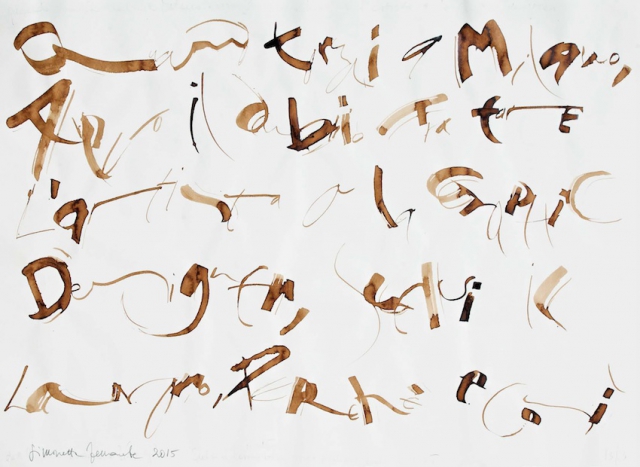 a Milano,
Avevo il dubbio Fare
L'artista o la Graphic
Designer, scelsi il
Lavoro, Perché così
Simonetta Ferrante 2015